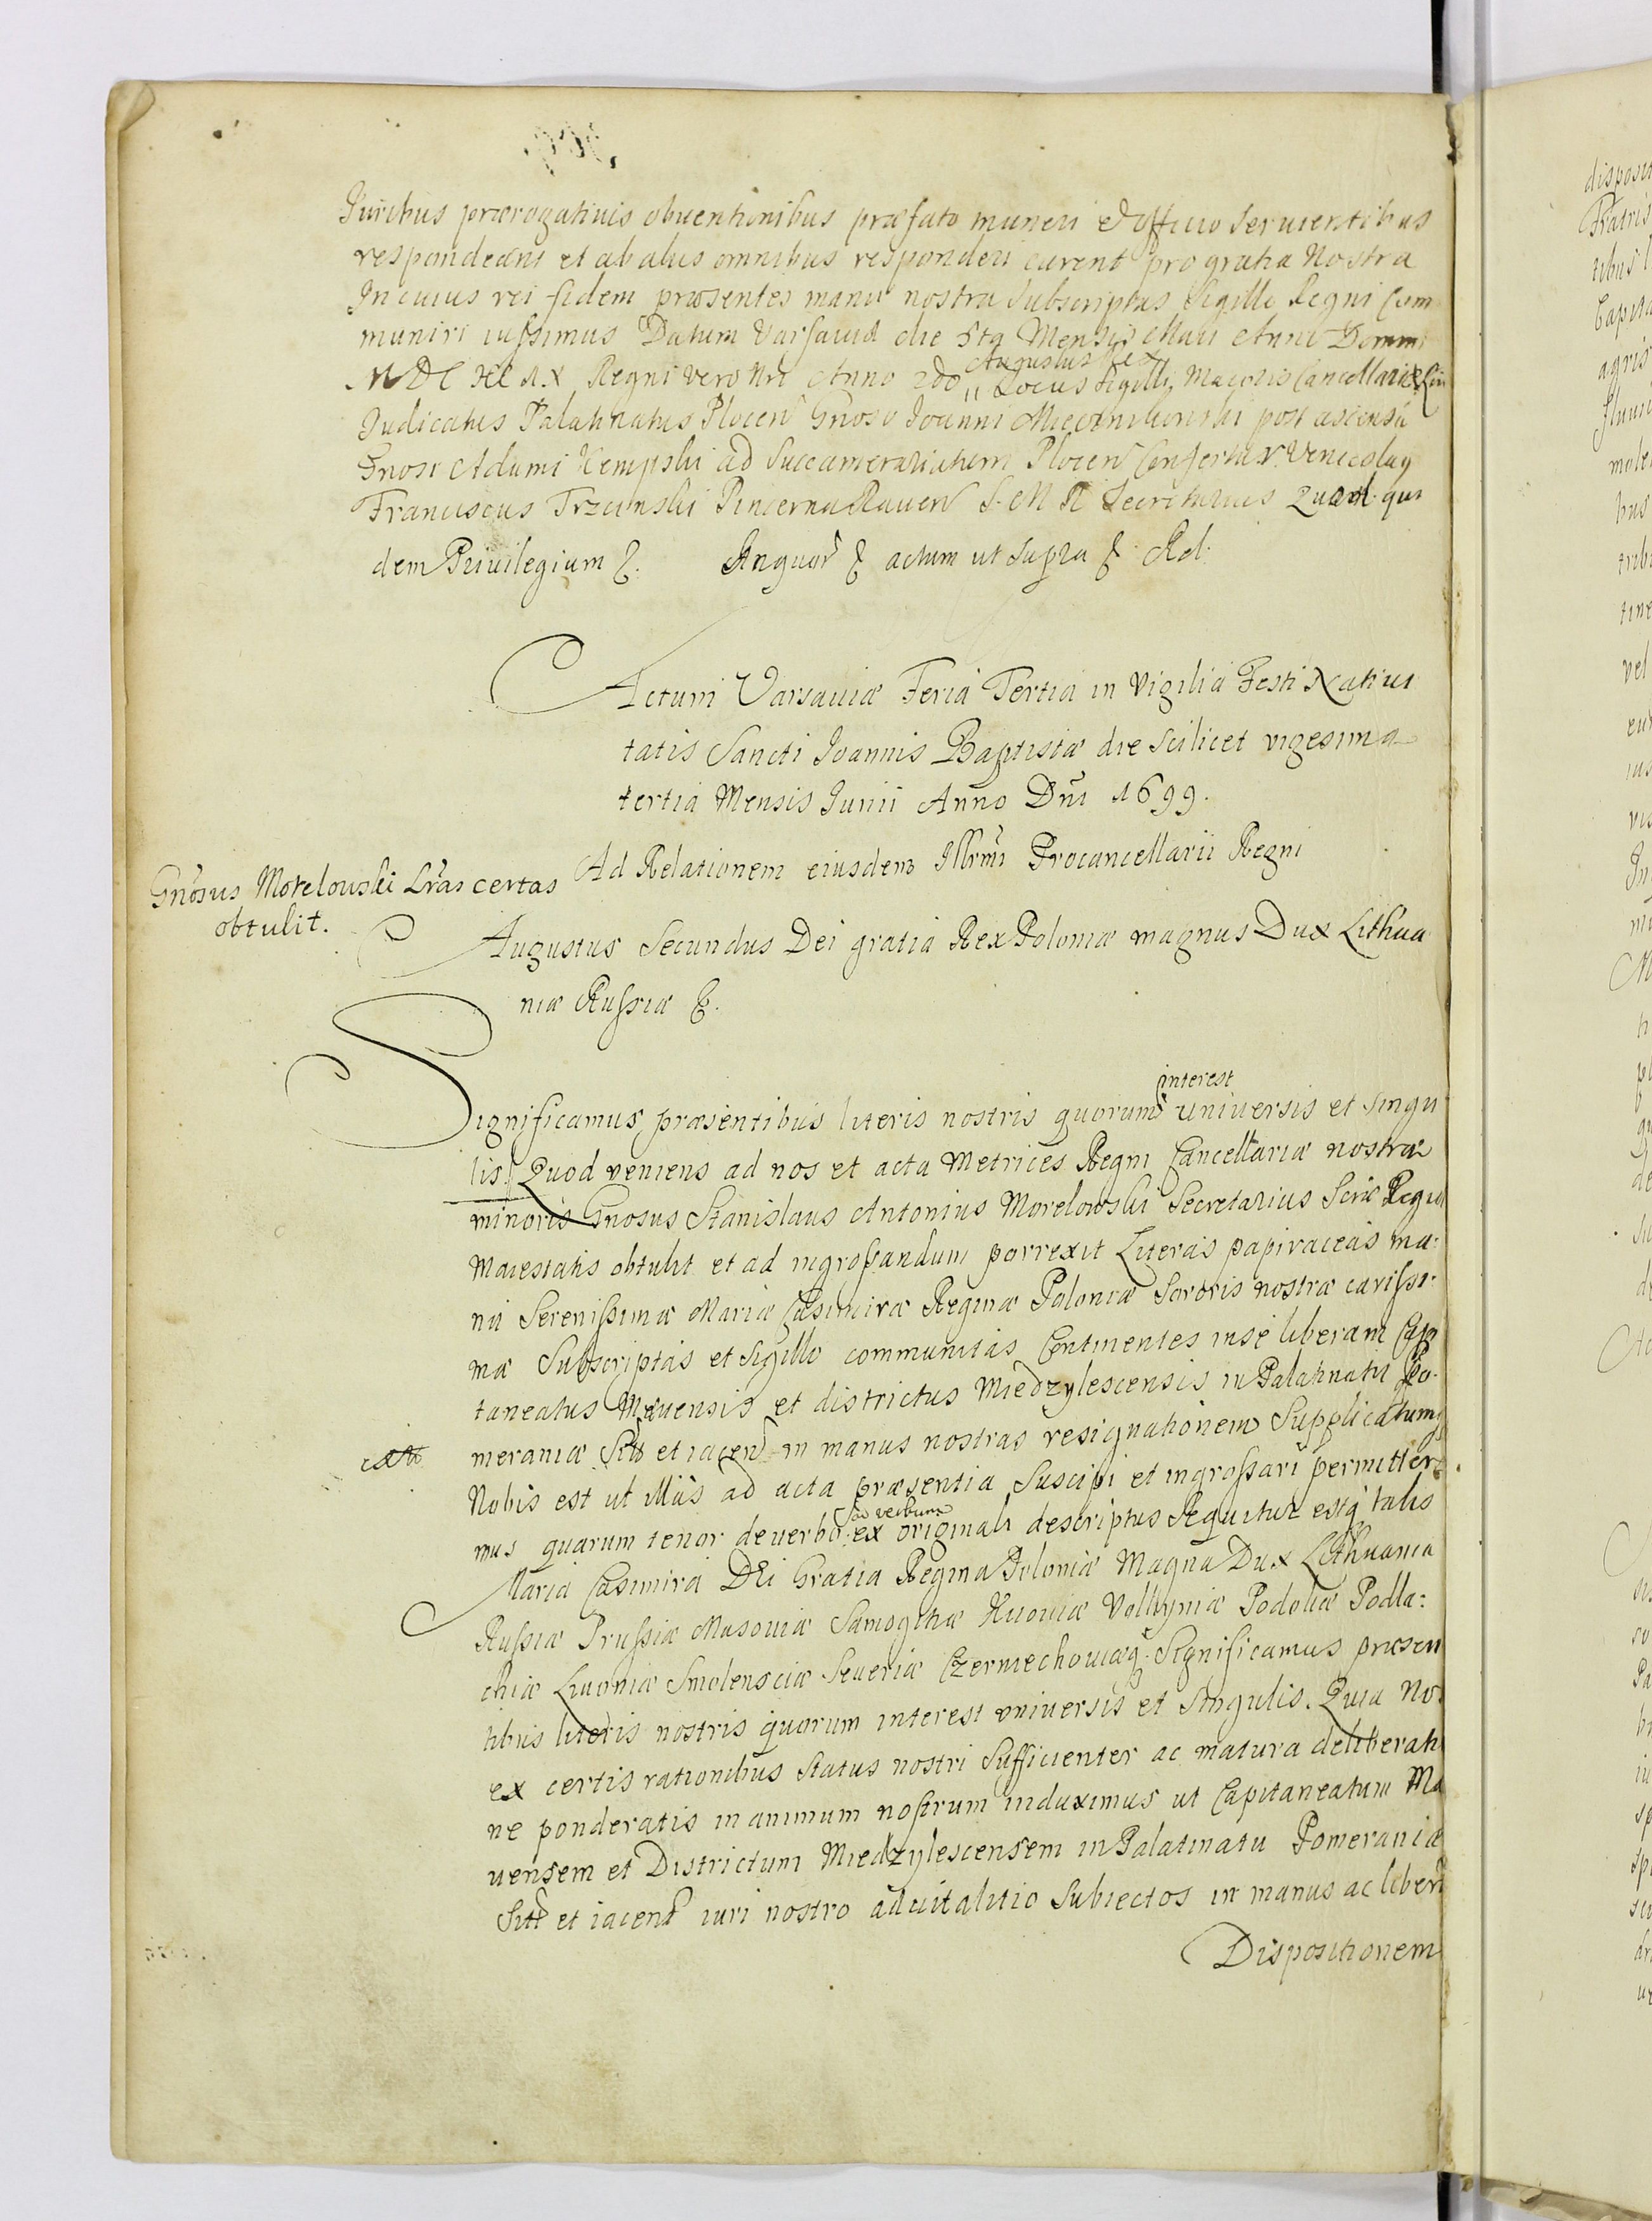 Juribus prærogativis obventionibus præfato muneri et officio servientibus
respondeant et ab aliis omnibus responderi curent pro gratia Nostra
In cuius rei fidem præsentes manu nostra subscriptas Sigillo Regni Com
muniri iussimus Datum Varsaviæ die 5ta Mensis Maii Anni Domini
Augustus Rex
Regni vero Nri Anno 2do Locus Sigilli, Maioris Cancellariæ
Judicatus Palatinatus Plocen Gnoso Joanni post ascensũ
Gnosi Adami Kempski ad Succamerariatum Plocen Confertur
Franciscus Trzcinski Pincerna Raven S. M. R. Secretarius Quod qui
dem Privilegium &. actum ut supra &. Rel.
Actum Varsaviæ Feria Tertia in Vigilia Festi Nativi
tatis Sancti Joannis Baptistæ die scilicet vigesima
tertia Mensis Junii Anno Dni 1699.
Ad Relationem eiusdem Illrmi Procancellarii Regni
Gnosus Morelowski Lras certas
obtulit.
Augustus Secundus Dei gratia Rex Poloniæ magnus Dux Lithua
niæ Russiæ &.
interest
Significamus præsentibus literis nostris quorum universis et singu
lis. Quod veniens ad nos et acta Metrices Regni Cancellariæ nostræ
minoris Gnosus Stanislaus Antonius Morelowski Secretarius Scræ Regiæ
Maiestatis obtulit et ad ingrossandum porrexit Literas papiraceas ma:
nu Serenissimæ Mariæ Casimiræ Reginæ Poloniæ Sororis nostræ carissi:
mæ Subscriptas et Sigillo communitas Continentes in se liberam Capi
taneatus Mevensis et districtus Miedzylescensis in Palatinatu Po
meraniæ Sit et iacen in manus nostras resignationem Supplicatumq
Nobis est ut illas ad acta præsentia suscipi et ingrossari permittere
ad verbum
mus quarum tenor de verbo ex originali descriptus sequitur estq talis
Maria Casimira Dei Gratia Regina Poloniæ Magna Dux Lithuaniæ
Russiæ Prussiæ Masoviæ Samogitiæ Kijoviæ Volhyniæ Podoliæ Podla:
chiæ Livoniæ Smolensciæ Severiæ Czerniechoviæq. Significamus præsen
tibus literis nostris quorum interest universis et singulis. Quia Nos
ex certis rationibus Status nostri Sufficienter ac matura deliberatio
ne ponderatis in animum nostrum induximus ut Capitaneatum Me
vensem et Districtum Miedzylescensem in Palatinatu Pomeraniæ
Sit et iacen iuri nostro advitalitio Subiectos in manus ac liberã
Dispositionem